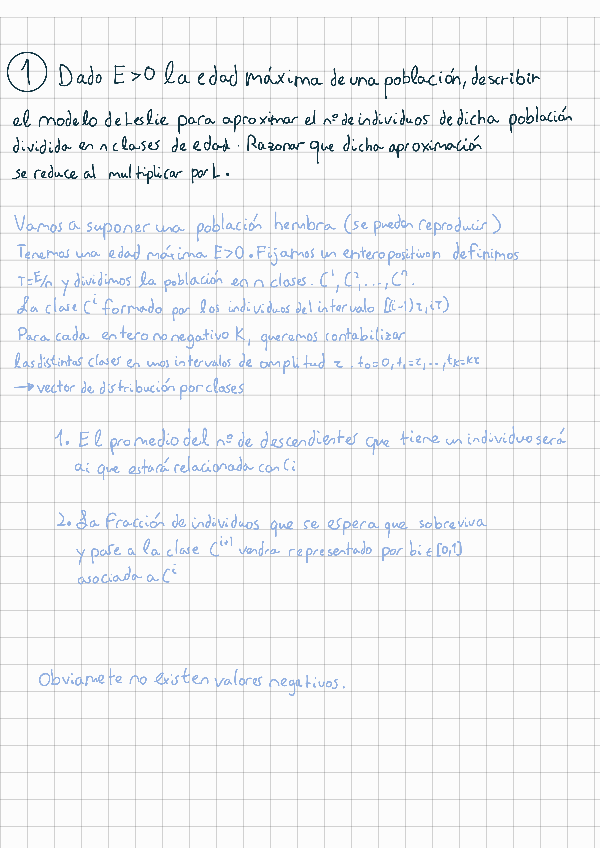 1 Dado E>0 la edad máxima de una población, describir
el modelo de Leslie para aproximar el nº de individuos de dicha población
dividida en n clases de edad. Razonar que dicha aproximación
se reduce al multiplicar por L.
Vamos a suponer una población hembra (se pueden reproducir)
Tenemos una edad máxima E>0. Fijamos un entero positivo n definimos
τ=E/n y dividimos la población en n clases. C¹, C², ..., Cⁿ.
La clase Cⁱ formado por los individuos del intervalo [(i-1)τ, iτ)
Para cada entero no negativo K, queremos contabilizar
las distintas clases en unos intervalos de amplitud τ. t₀=0, t₁=τ, ..., tₖ=kτ
→ vector de distribución por clases
1. El promedio del nº de descendientes que tiene un individuo será
ai que estará relacionada con Ci
2. La Fracción de individuos que se espera que sobreviva
y pase a la clase Cⁱ⁺¹ vendra representado por bi ∈ [0,1]
asociada a Cⁱ
Obviamete no existen valores negativos.